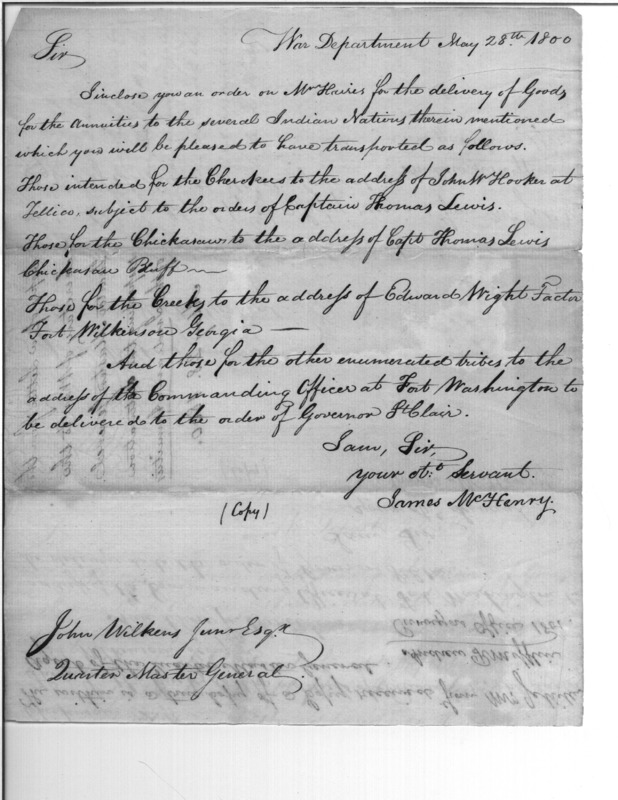 War Department May 28th. 1800
Sir
I inclose you an order on Mr Harris for the delivery of Goods
for the Annuities to the several Indian Nations therein mentioned
which you will be pleased to have transported as follows.
Those intended for the Cherokees to the address of John W Hooker at
Tellico, subject to the orders of Captain Thomas Lewis.
Those for the Chickasaws to the address of Capt Thomas Lewis
Chickasaw Bluff
Those for the Creeks to the address of Edward Wight Factor
Fort Wilkinson Georgia —
And those for the other enumerated tribes to the
address of the Commanding Officer at Fort Washington to
be delivered to the order of Governor St Clair.
I am, Sir,
your obt. Servant.
James McHenry.
(Copy)
John Wilkens Junr Esqr
Quarter Master General